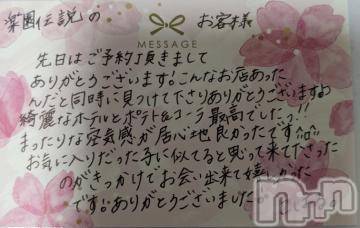 楽園伝説の
お客様
MESSAGE
先日はご予約頂きまして
ありがとうございます!こんなお店あった
んだと同時に見つけて下さりありがとうございますお
綺麗なホテルとポテト&コーラ最高でしたっ!!
まったりな空気感が居心地良かったです
お気に入りだった子に似てると思って来て下さった
のがきっかけでお会い出来て嬉しかった
です。ありがとうございました